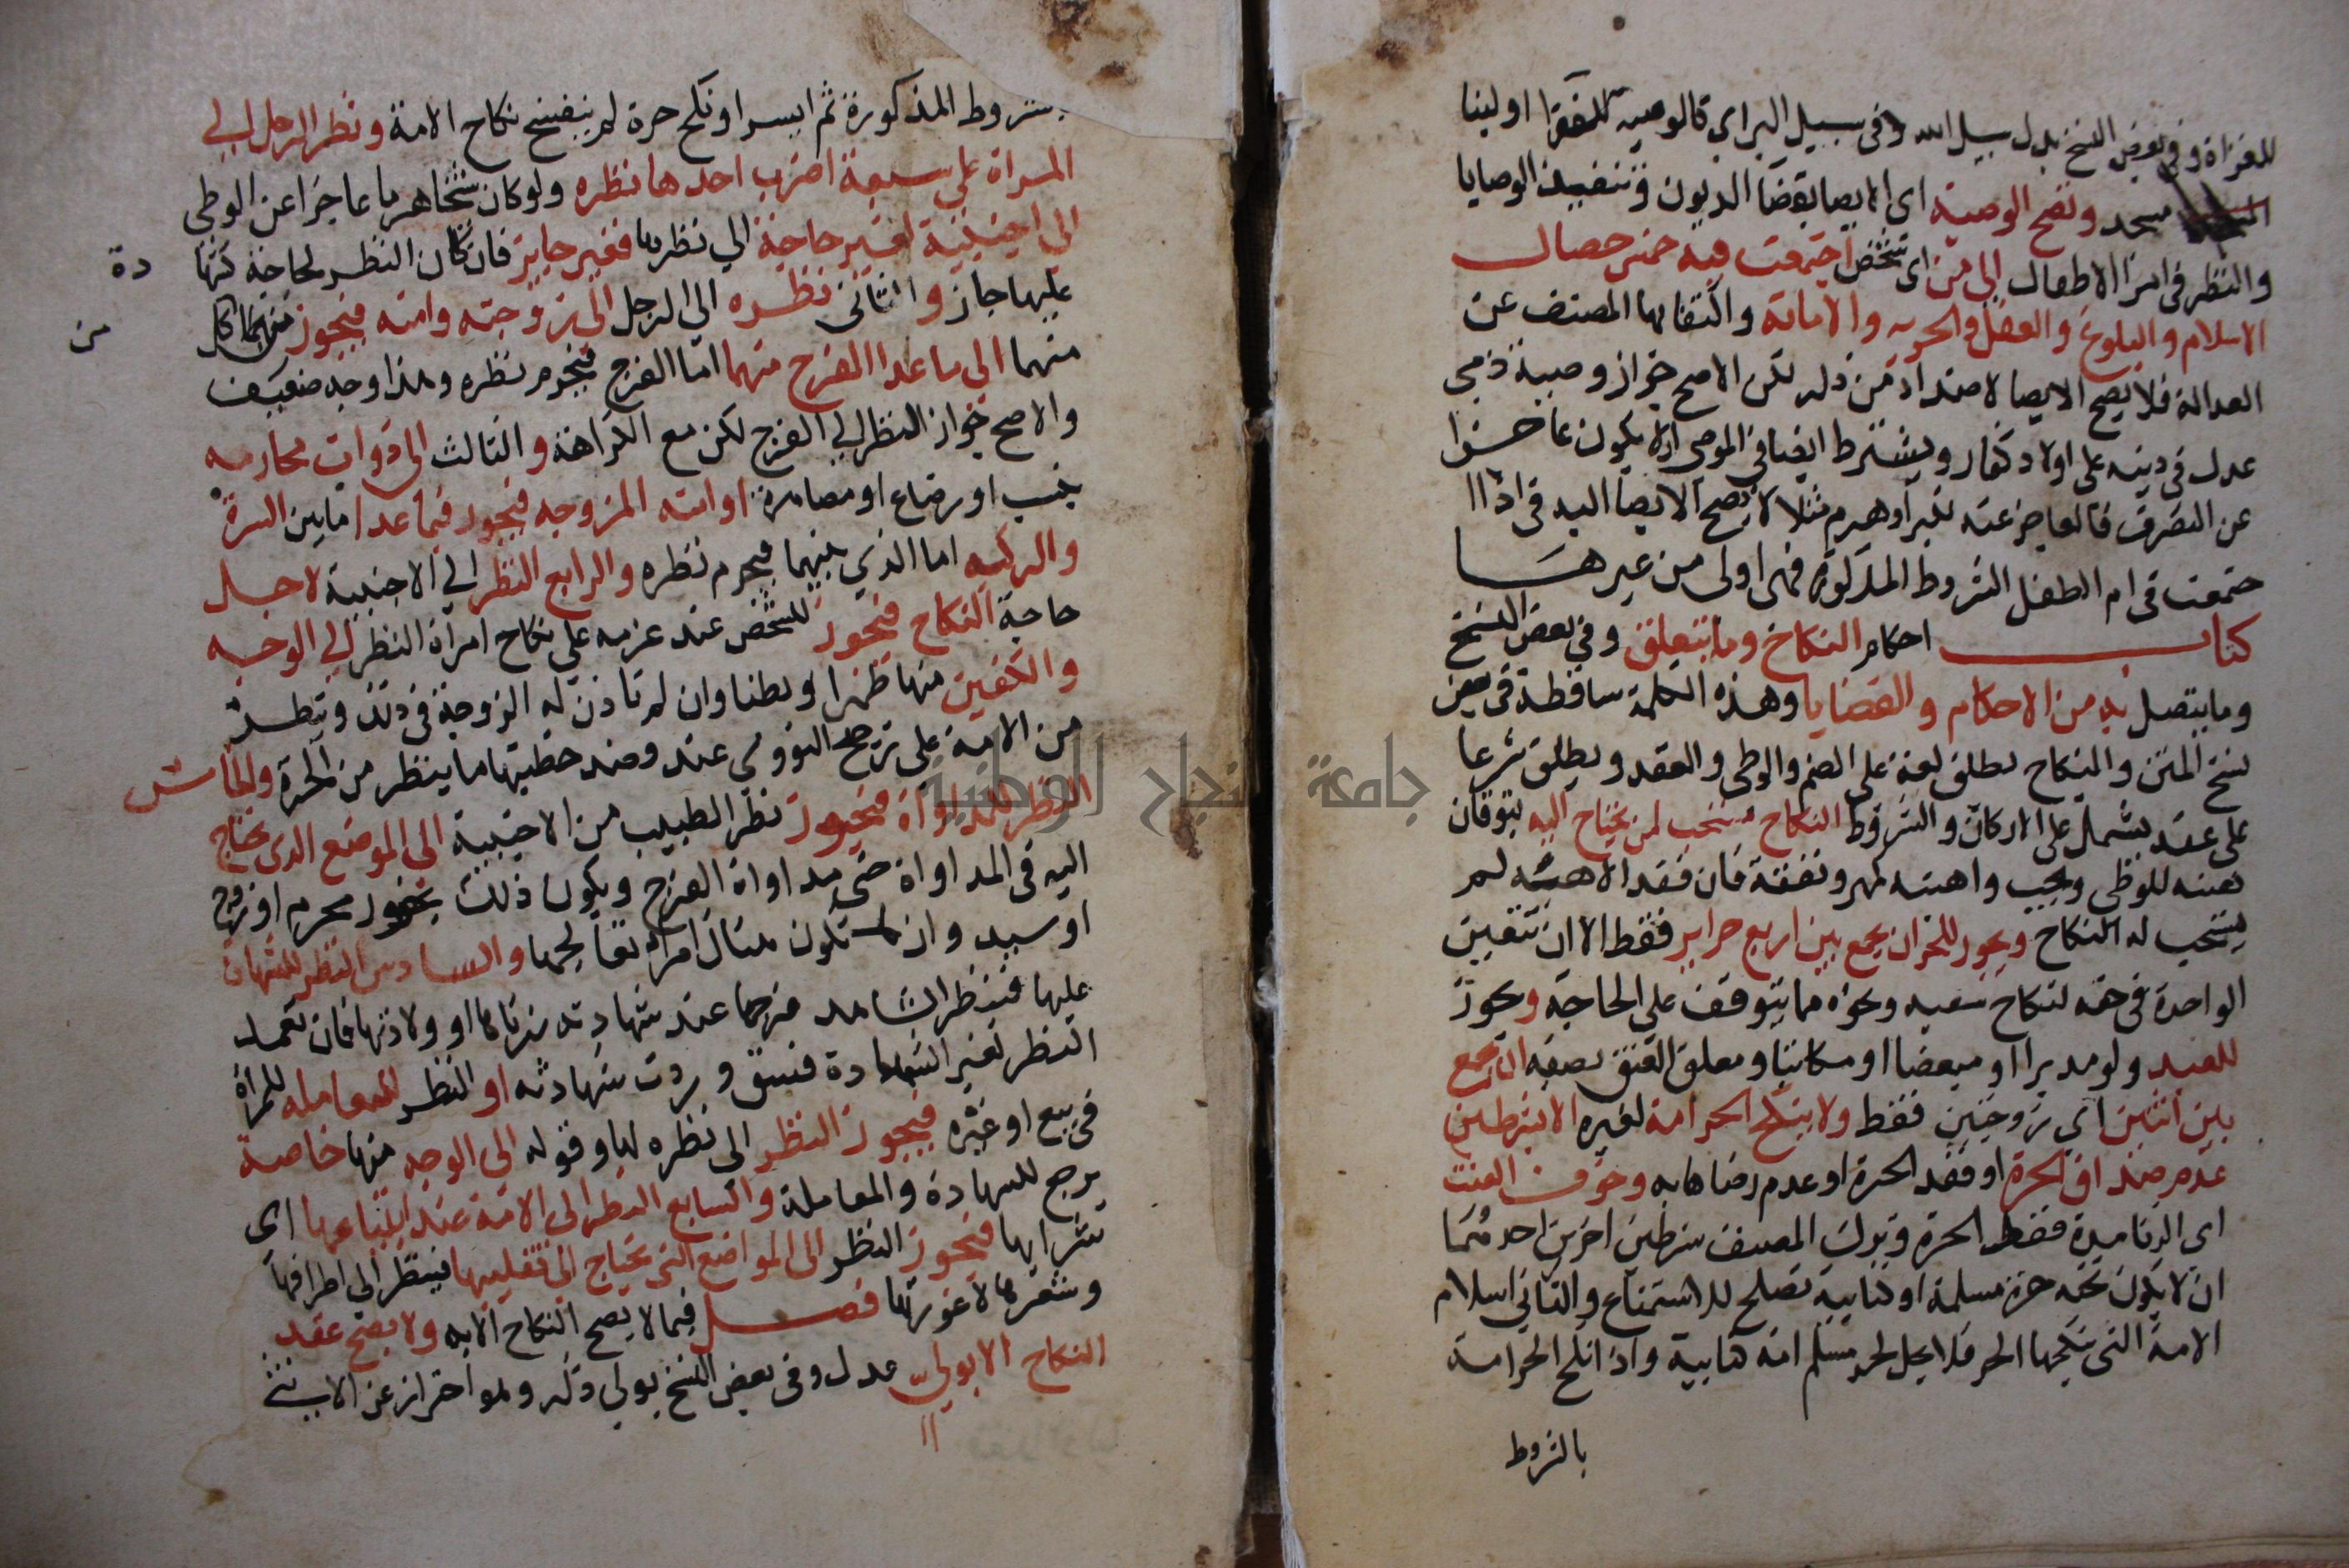 للغزاة وفي بعض النسخ بدل سبيل الله وفي سبيل البر اي كالوصية للفقرا او لبنا
مسجد وتصح الوصية اي الايصا بقضا الديون وتنفيذ الوصايا
والنظر في امر الاطفال الى من اي شخص اجتمعت فيه خمس خصال
الاسلام والبلوغ والعقل والحريه والامانة واكتفا بها المصنف عن
العدالة فلا يصح الايصا لاضداد من ذكر لكن الاصح جواز وصية ذمي
عدل في دينه على اولاد كفار ويشترط ايضا في الموصى ان لا يكون عاجزا
عن التصرف فالعاجز عنه لكبر او هرم مثلا لا يصح الايصا اليه فاذا ا
جتمعت في ام الطفل الشروط المذكورة فهي اولى من غيرها
كتاب احكام النكاح وما يتعلق وفي بعض النسخ
وما يتصل به من الاحكام والقضايا وهذه الكلمة ساقطة في بعض
نسخ المتن والنكاح يطلق لغة على الضم والوطي والعقد ويطلق شرعا
على عقد يشمل على الاركان والشروط النكاح مستحب لمن يحتاج اليه بتوقان
نفسه للوطي ويجب واهبته كمهر ونفقة فان فقد الاهبة لم
يستحب له النكاح ويجوز للحر ان يجمع بين اربع حراير فقط الا ان تتعين
الواحدة في حقه لنكاح سفيه ونحوه مما يتوقف على الحاجة ويجوز
للعبد ولو مدبرا او مبعضا او مكاتبا ومعلق العتق بصفه ان يجمع
بين اثنين اي زوجتين فقط ولا ينكح الحر امة لغيره الا بشرطين
عدم صداق الحرة او فقد الحرة او عدم رضاها به وخوف العنت
اي الزنا مدة فقط الحرة وترك المصنف شرطين اخرين احدهما
ان لا يكون تحته حرة مسلمة او كتابية تصلح للاستمتاع والثاني اسلام
الامة التي ينكحها الحر فلا يحل لحر مسلم امة كتابية واذا نكح الحر امة
بالشروط
بشروط المذكورة ثم ايسر او نكح حرة لم ينفسخ نكاح الامة ونظر الرجل الى
المراة على سبعة اضرب احدها نظره ولو كان شيخا هرما عاجزا عن الوطي
الى اجنبية لغير حاجة الي نظرها فغير جايز فان كان النظر لحاجة كشها
دة
عليها جاز والثاني نظره اي الرجل الى زوجته وامته فيجوز منهما كل
من
منهما الى ما عدا الفرج منهما اما الفرج فيحرم نظره وهذا وجه ضعيف
والاصح جواز النظر الى الفرج لكن مع الكراهة والثالث الى ذوات محارمه
بنسب او رضاع او مصاهرة او امته المزوجه فيجوز فيما عدا ما بين السرة
والركبه اما الذي بينهما فيحرم نظره والرابع النظر الي الاجنبية لاجل
حاجة النكاح فيجوز للشخص عند عزمه على نكاح امراة النظر الي الوجه
والكفين منها ظهرا وبطنا وان لم تاذن له الزوجة في ذلك وينظر
من الامة على ترجيح النووي عند قصد خطبتها ما ينظر من الحرة والخامس
النظر للمداواة فيجوز نظر الطبيب من الاجنبية الى الموضع الذي يحتاج
اليه في المداواة حتى مداواة الفرج ويكون ذلك بحضور محرم او زوج
او سيد وان لا تكون هناك امراة تعالجها والسادس النظر للشهادة
عليها فينظر الشاهد فرجها عند شهادته بزناها او ولادتها فان تعمد
النظر لغير الشهادة فسق وردت شهادته او النظر للمعامله للمراة
في بيع او غيره فيجوز النظر الى نظره لها وقوله الى الوجه منها خاصة
يرجع للشهادة والمعاملة والسابع النظر الى الامة عند ابتياعها اي
شرايها فيجوز النظر الى المواضع التي يحتاج الى تقليبها فينظر الى اطرافها
وشعرها لا عورتها فصل فيما لا يصح النكاح الا به ولا يصح عقد
النكاح الا بولي عدل وفي بعض النسخ بولي ذكر وهو احتراز عن الانثى
جامعة النجاح الوطنية